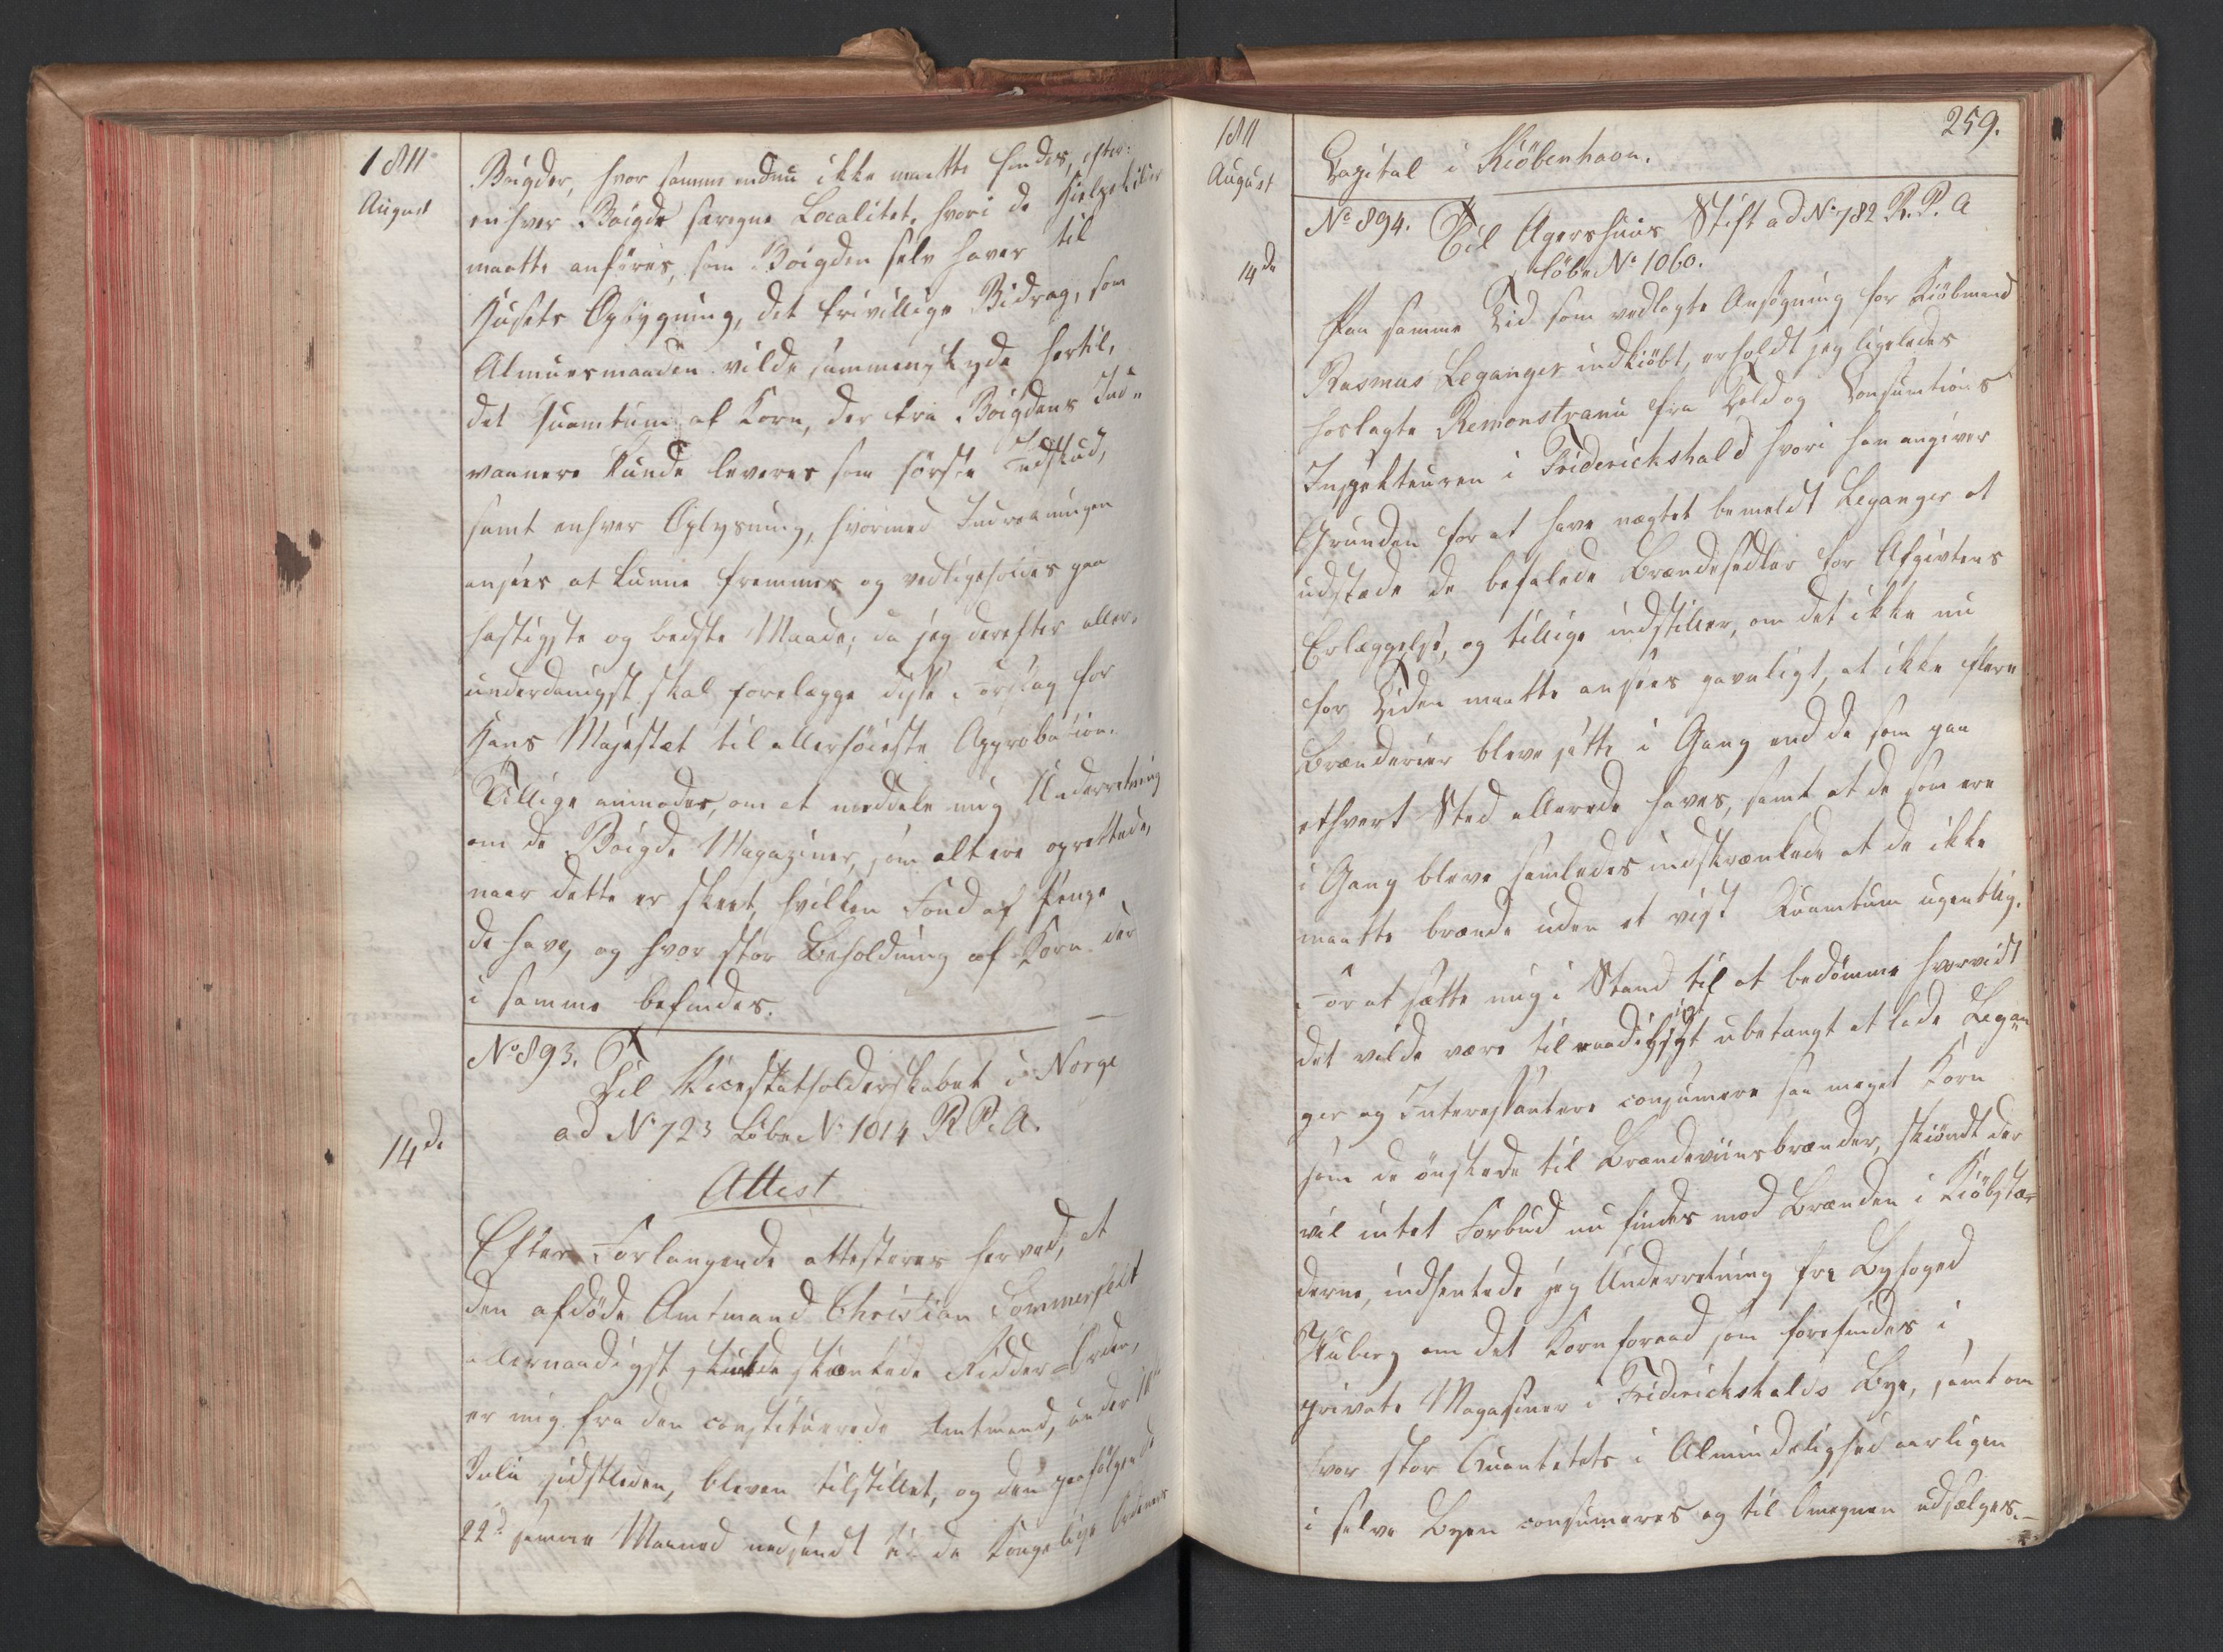 1811
August
Böigder, hvor samme endnu ikke maatte findes, efter
enhver Böigds særegne Localitet, hvori de Hielpekilder
maatte anføres, som Böigden selv haver til
Husets Opbygning, det frivillige Bidrag, som
Almuesmanden vilde sammenskyde hertil,
det Quantum af Korn, der fra Böigdens Ind-
vaanere kunde leveres som første Indskud,
samt enhver Oplysning, hvormed Indretningen
ansees at kunne fremmes og vedligeholdes paa
hastigste og bedste Maade; da jeg derefter aller-
underdanigst skal forelægge disse Forslag for
Hans Majestæt til allerhöieste Approbation.
Tillige anmodes, om at meddele mig Underretning
om de Böigde Magaziner, som alt ere oprettede,
naar dette er skeet, hvilken Fond af Penge
de have, og hvor stor Beholdning af Korn der
i samme befindes.
No 893.
Til Vicestatholderskabet i Norge
ad No 723 Löbe No 1014 R. P. A.
14de
Attest
Efter Forlangende attesteres herved, at
den afdöde Amtmand Christian Sommerfeldt
allernaadigst skienkede Ridder-Orden,
er mig fra den constituerede Amtmand, under
Julii sidstleden, bleven tilstillet, og den paafølgende
22d samme Maaned nedsendt til de Kongelige Ordeners
259.
1811
August
Capital i Kiöbenhavn.
No 894. Til Agershuus Stift ad No 782 R. P. A
löbe No 1060.
14de
Paa samme Tid som vedlagte Ansögning for Kiöbmand
Rasmus Leganger indkiöbt, erholdt jeg ligeledes
hoslagte Remonstrami fra Told og Consumtions
Inspekteuren i Friderichshald hvori han angiver
Grunden for at have nægtet bemeldt Leganger at
udstæde de befalede Brændesedler for Afgivtens
Erlæggelse, og tillige indstiller, om det ikke nu
for Tiden maatte ansees gavnligt, at ikke flere
Brænderier bleve satte i Gang end de som paa
ethvert Sted allerede haves, samt at de som ere
i Gang bleve saaledes indskrænkede at de ikke
maatte brænde uden et vist Quantum ugentlig.
For at sætte mig i Stand til at bedömme hvorvidt
det vilde være tilraadeligt ubetingt at lade Legan
ger og Interessentere consumere saa meget Korn
som de önskede til Brændeviinsbrænden, skiöndt der
vel intet Forbud nu findes mod Brænden i Kiöbstæ-
derne, indhentede jeg Underretning fra Byfoged
Stuberg om det Kornforraad som forefindes i
private Magasiner i Friderichshalds Bye, samt om
hvor stor Quantitets i Almindelighed aarligen
i selve Byen consumeres og til Omegnen udsælges.